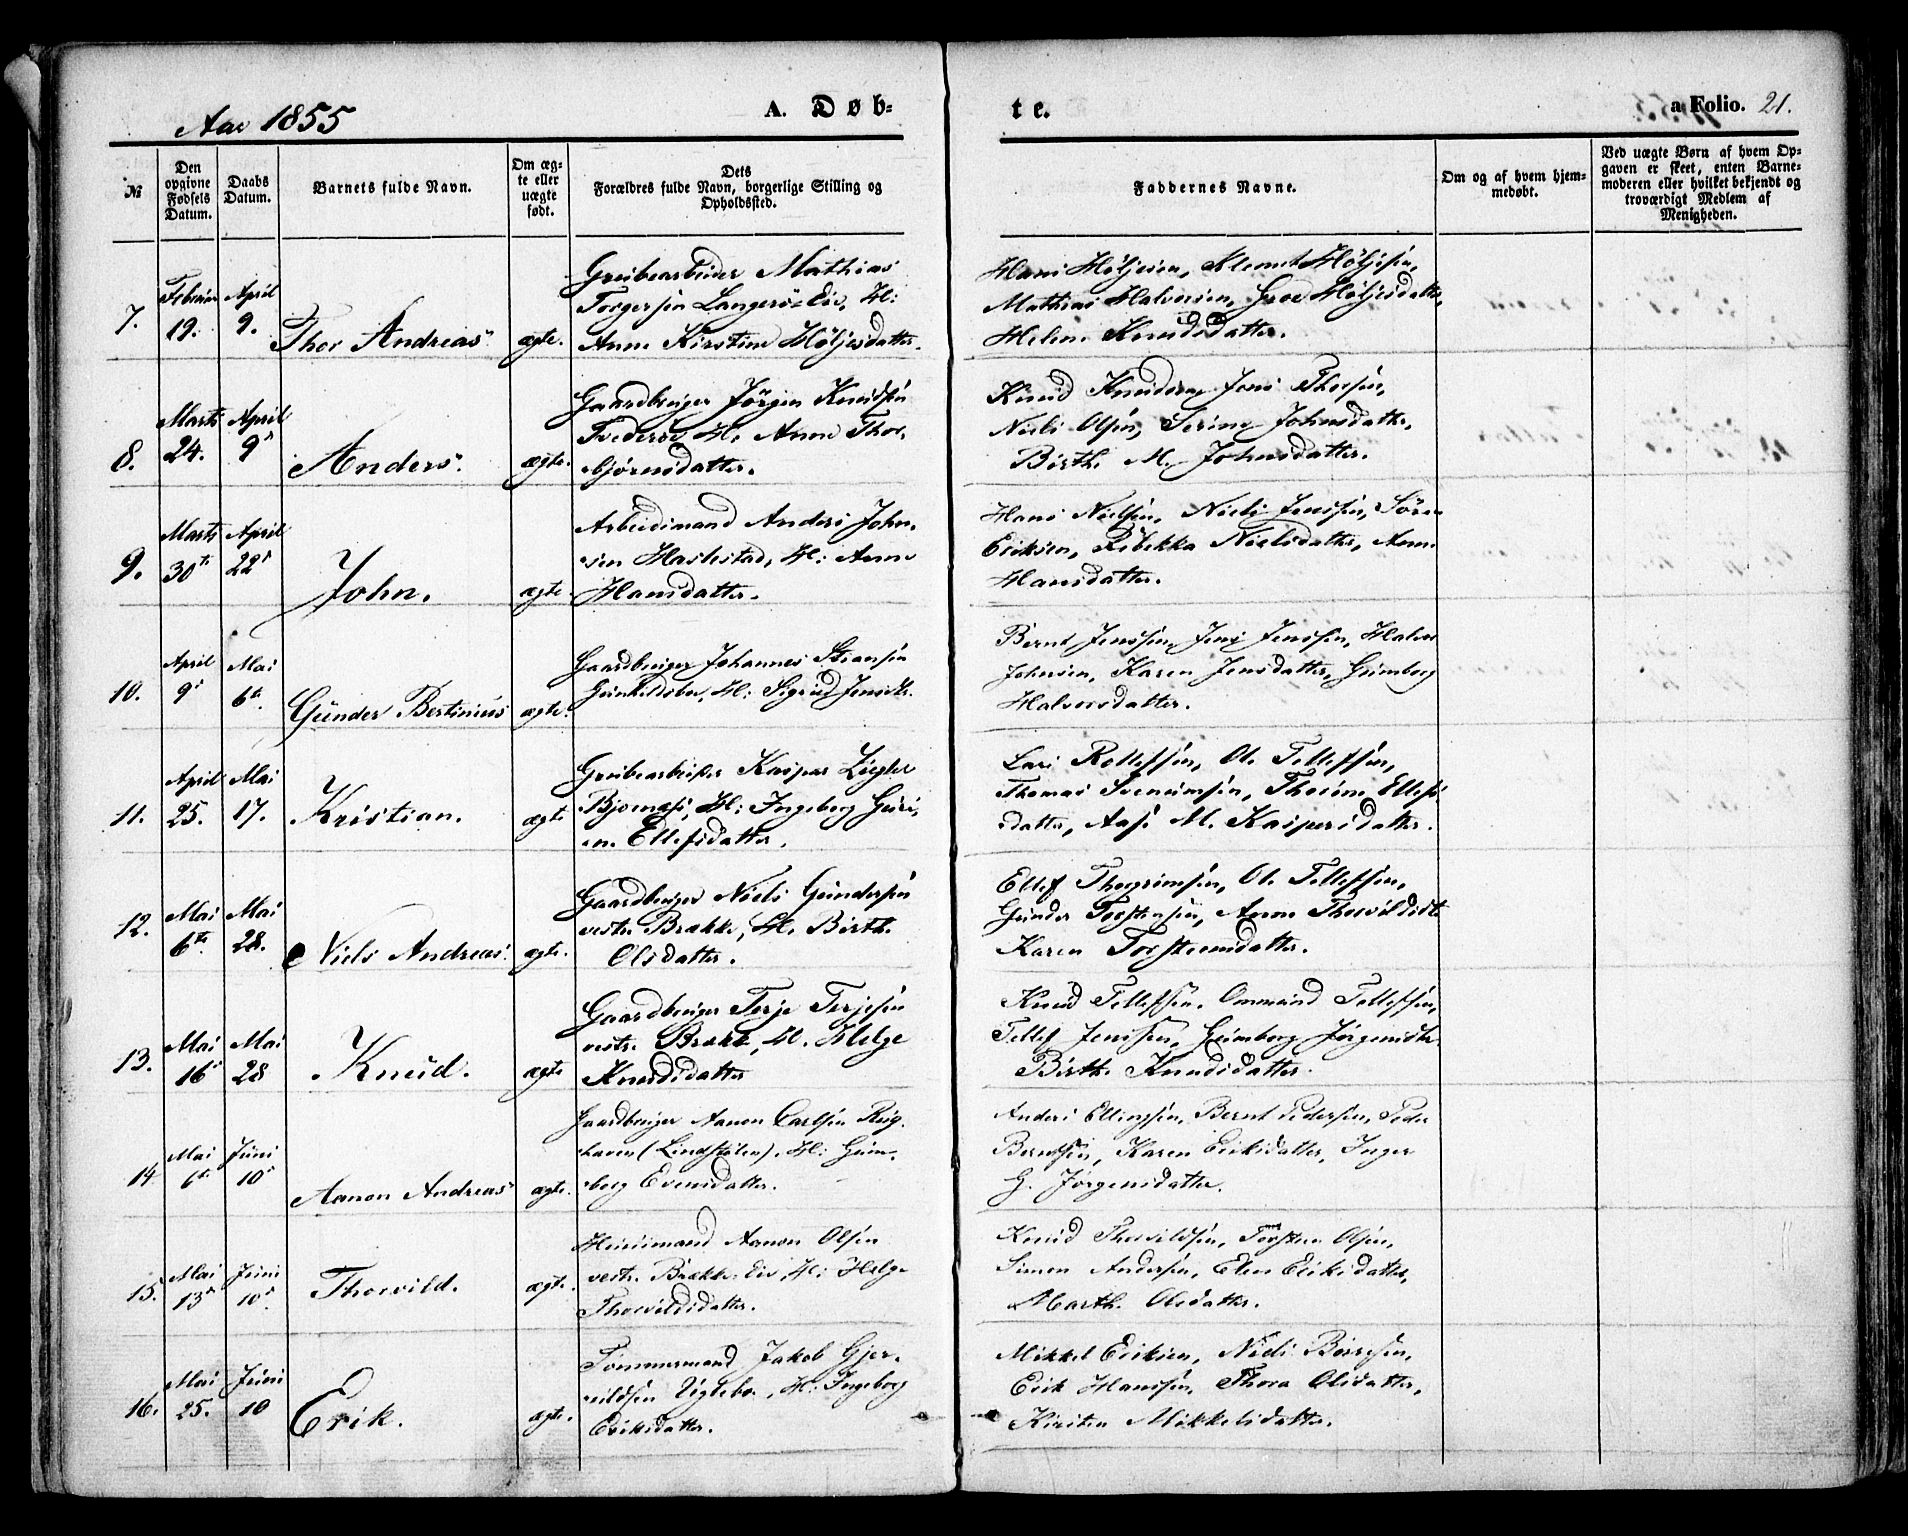 Aar 1855
A. Døb-
te.
a Folio. 21.
№
Den opgivne Fødsels Datum.
Daabs Datum.
Barnets fulde Navn.
Om ægte eller uægte født.
Dets
Forældres fulde Navn, borgerlige Stilling og
Opholdssted.
Faddernes Navne.
Om og af hvem hjem-
medøbt.
Ved uægte Børn af hvem Op-
gaven er skeet, enten Barne-
moderen eller hvilket bekjendt og
troværdigt Medlem af
Menigheden.
7.
Februar 19.
April 9.
Thor Andreas
ægte.
Grubearbeider Mathias
Torgersen Langersø Eie, H:
Anne Kirstine Høljesdatter.
Hans Høljesen, Klemet Høljesen,
Mathias Halvorsen, Groe Høljesdatter,
Helene Knudsdatter.
8.
Marts 24.
April 9
Anders.
ægte.
Gaardbruger Jørgen Knudsen
H. Anne Thor-
bjørnsdatter.
Knud Knudsen Jens Thorsen,
Niels Olsen, Serine Johnsdatter,
Birthe M. Johnsdatter.
9.
Marts 30te
April 22
John.
ægte
Arbeidsmand Anders John-
sen Haslestad, H: Anne
Hansdatter.
Hans Nielsen, Niels Jensen, Søren
Eriksen, Rebekka Nielsdatter, Anne
Hansdatter.
10.
April 9
Mai 6te
Gunder Bertinius
ægte.
Gaardbruger Johannes Steansen
H: Sigrid Jensdtr.
Bernt Jenssen, Jens Jenssen, Halvor
Johnsen, Karen Jensdatter, Gunborg
Halvorsdatter.
11.
April 25.
Mai 17.
Kristian.
ægte
Grubearbeider Kasper Ziegler
Bjornæs, H: Ingeborg Guri-
ne Ellefsdatter.
Lars Rollefsen, Ole Tellefsen,
Thomas Svenumsen, Thorine Ellefs-
datter, Aase M. Kaspersdatter.
12.
Mai 6te
Mai 28.
Niels Andreas.
ægte.
Gaardbruger Niels Gundersen
vestre Brække, H. Birthe
Olsdatter.
Ellef Thorgrimsen, Ole Tellefsen,
Gunder Torstensen, Anne Thorvildsdtr.
Karen Torstensdatter.
13.
Mai 16
Mai 28
Knud.
ægte
Gaardbruger Terje Terjesen
vestre Brække, H. Helge
Knudsdatter
Knud Tellefsen, Ommund Tellefsen,
Tellef Jenssen, Gunborg Jørgensdtr.
Birthe Knudsdatter.
14
Mai 6te
Juni 10
Aanon Andreas
ægte.
Gaardbruger Aanon Carlsen Rug-
haven (Lindstølen), H: Gun-
borg Evensdatter.
Anders Ellingsen, Bernt Pedersen, Peder
Berntsen, Karen Eriksdatter, Inger
G. Jørgensdatter.
15.
Mai 13
Juni 10
Thorvild.
ægte.
Huusmand Aanon Olsen
vestre Brække Eie, H: Helge
Thorvildsdatter.
Knud Thorvildsen, Torsten Olsen,
Simon Andersen, Elen Eriksdatter,
Marthe Olsdatter.
16.
Mai 25.
Juni 10
Erik.
ægte.
Tømmermand Jakob Gjer-
uldsen Viglebo, H: Ingeborg
Eriksdatter.
Mikkel Eriksen, Niels Børresen,
Erik Hanssen, Thora Olsdatter,
Kirsten Mikkelsdatter.